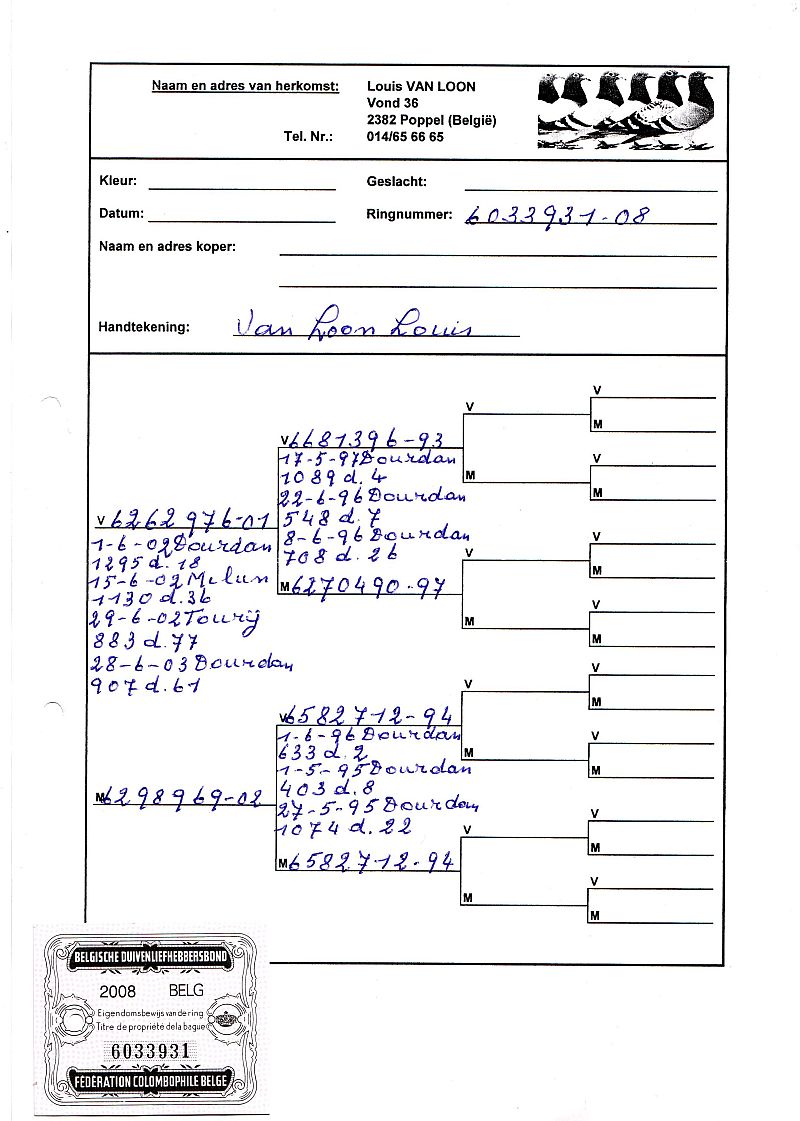 Naam en adres van herkomst: Louis VAN LOON
Vond 36
2382 Poppel (België)
Tel. Nr.: 014/65 66 65
Kleur: Geslacht:
Datum: Ringnummer: 6033931-08
Naam en adres koper:
Handtekening: Van Loon Louis
V
V
M
V 6681396-93
17-5-97 Dourdan
1089 d. 4
22-6-96 Dourdan
548 d. 7
8-6-96 Dourdan
708 d. 26
M
V
M
V 6262976-01
1-6-02 Dourdan
1295 d. 18
15-6-02 Melun
1130 d. 36
29-6-02 Toury
883 d. 77
28-6-03 Dourdan
907 d. 61
M 6270490-97
V
V
M
M
V
M
V 6582712-94
1-6-96 Dourdan
633 d. 2
1-5-95 Dourdan
403 d. 8
27-5-95 Dourdan
1074 d. 22
V
V
M
M
V
M
M 6298969-02
M 6582712-94
V
V
M
M
V
M
BELGISCHE DUIVENLIEFHEBBERSBOND
2008 BELG
Eigendomsbewijs van de ring
Titre de propriété de la bague
6033931
FÉDÉRATION COLOMBOPHILE BELGE